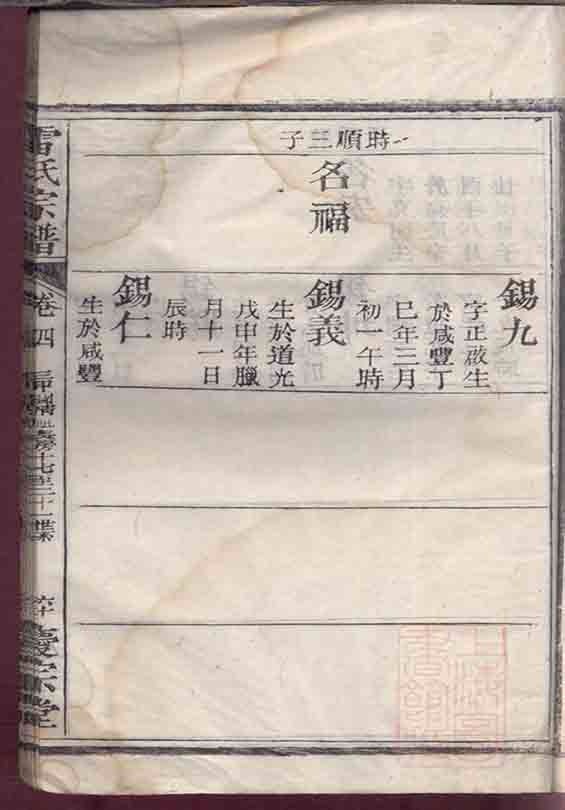 時順三子
名福
錫九
字正啟生
於咸豐丁
巳年三月
初一午時
錫義
生於道光
戊申年臘
月十一日
辰時
錫仁
生於咸豐
雷氏宗譜
卷四
上海圖書館藏